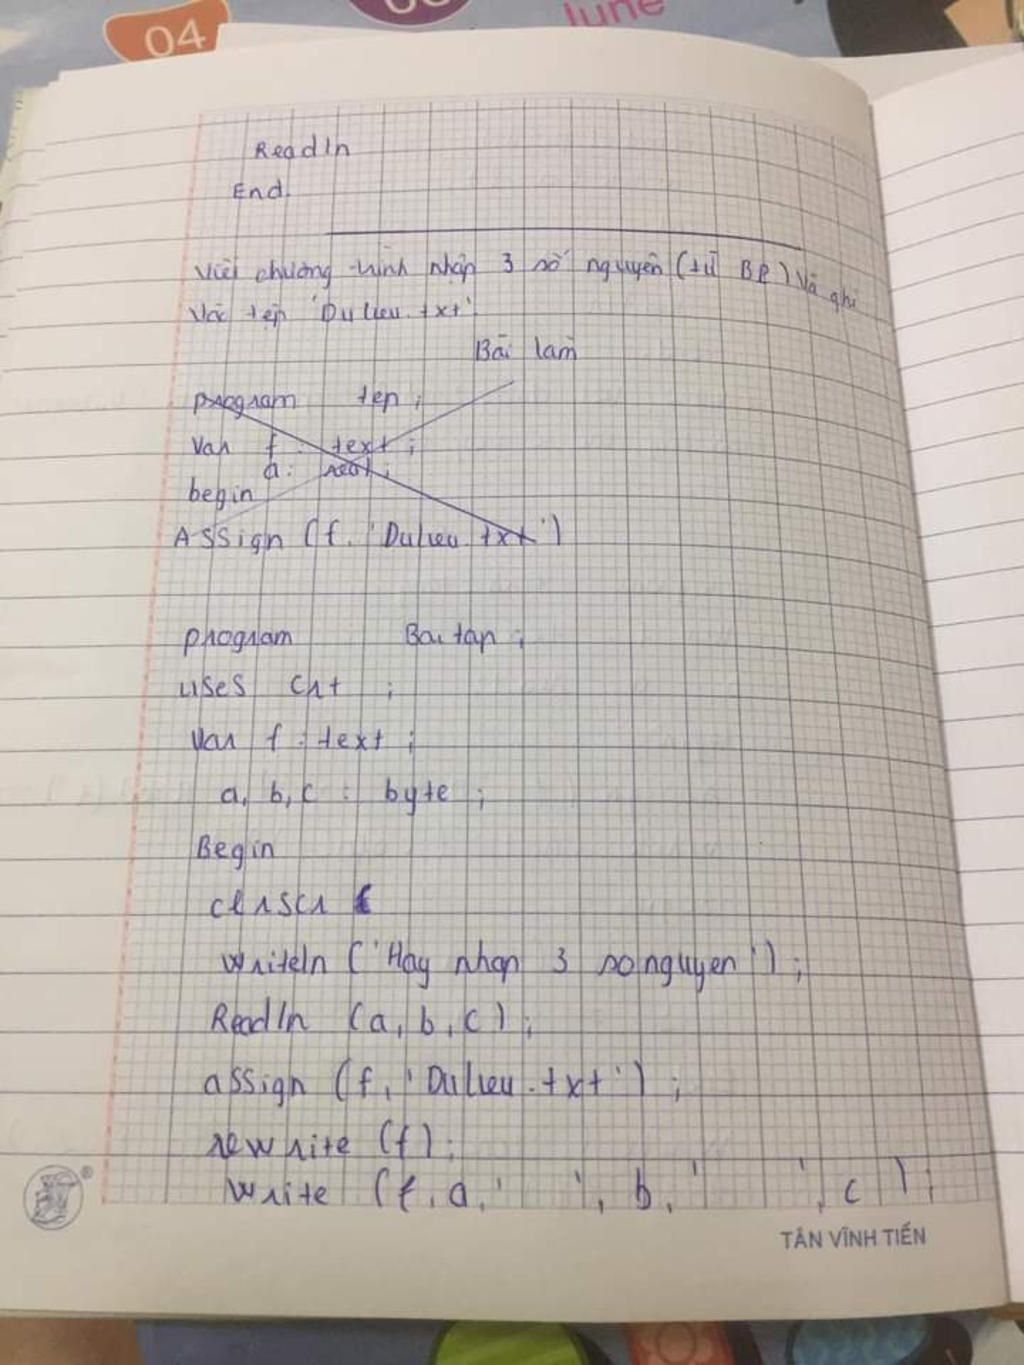 04
June
Readln
End.
Viết chương trình nhập 3 số nguyên (từ BP) và ghi
vào tệp 'Dulieu.txt'.
Bài làm
program tep ;
Var f : text ;
a : real ;
begin
Assign (f, 'Dulieu.txt')
program Baitap ;
uses crt ;
Var f : text ;
a, b, c : byte ;
Begin
clrscr
writeln ('Hay nhap 3 so nguyen') ;
Readln (a, b, c) ;
assign (f, 'Dulieu.txt') ;
rewrite (f) ;
write (f, a, ' ', b, ' ', c ) ;
TÂN VĨNH TIẾN